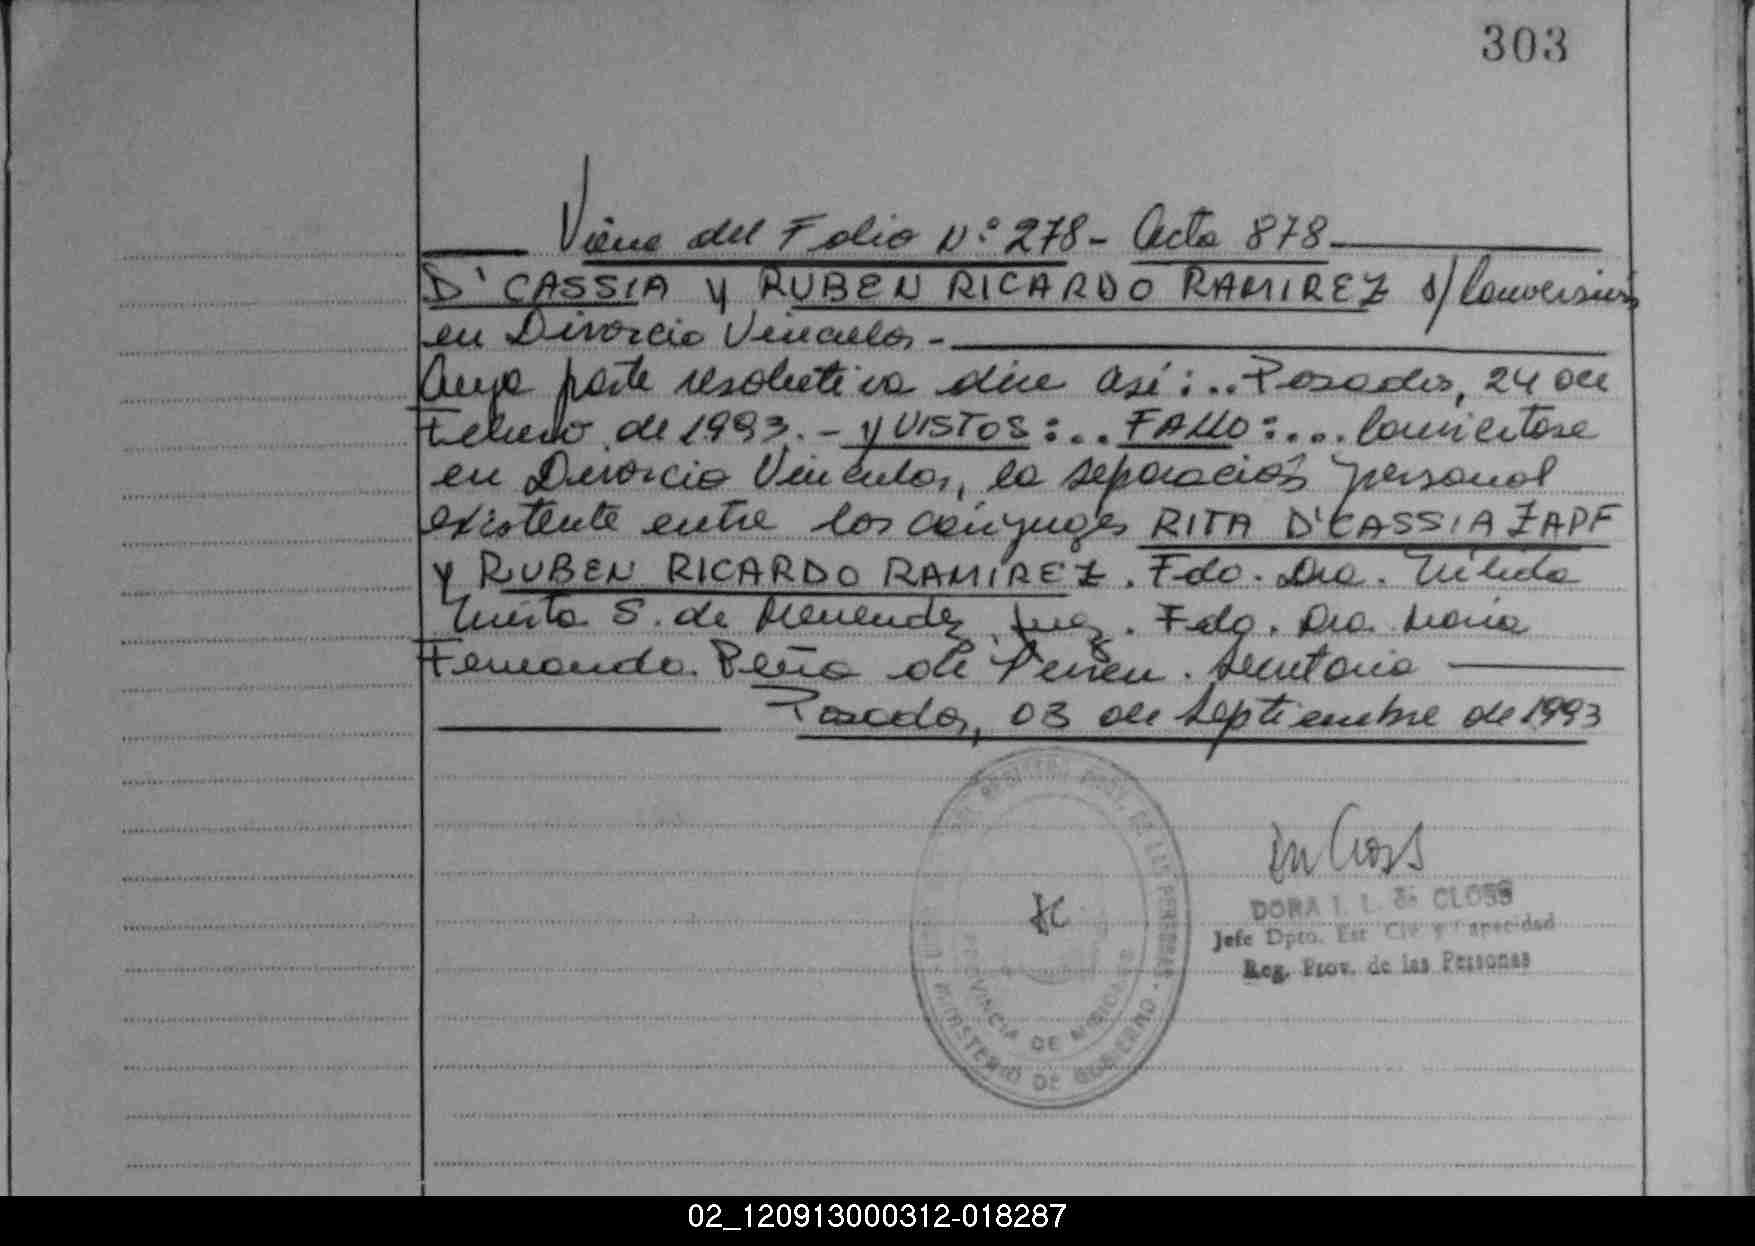 303
Viene del Folio N° 278 - Acta 878
D'CASSIA y RUBEN RICARDO RAMIREZ s/ Conversión
en Divorcio Vincular. -
Cuya parte resolutiva dice así: .. Posadas, 24 de
Febrero de 1993. - y VISTOS: .. FALLO: ... Convertose
en Divorcio Vincular, la separación personal
existente entre los cónyuges RITA D'CASSIA ZAPF
y RUBEN RICARDO RAMIREZ. Fdo. Dra.
S. de Menendez. Juez. Fdo. Dra. María
Fernanda Peña de Perien. Secretaria
Posadas, 03 de Septiembre de 1993
DORA I. L. de CLOSS
Jefe Dpto. Est. Civ. y Capacidad
Reg. Prov. de las Personas
PROVINCIA DE MISIONES
MINISTERIO DE GOBIERNO
02_120913000312-018287